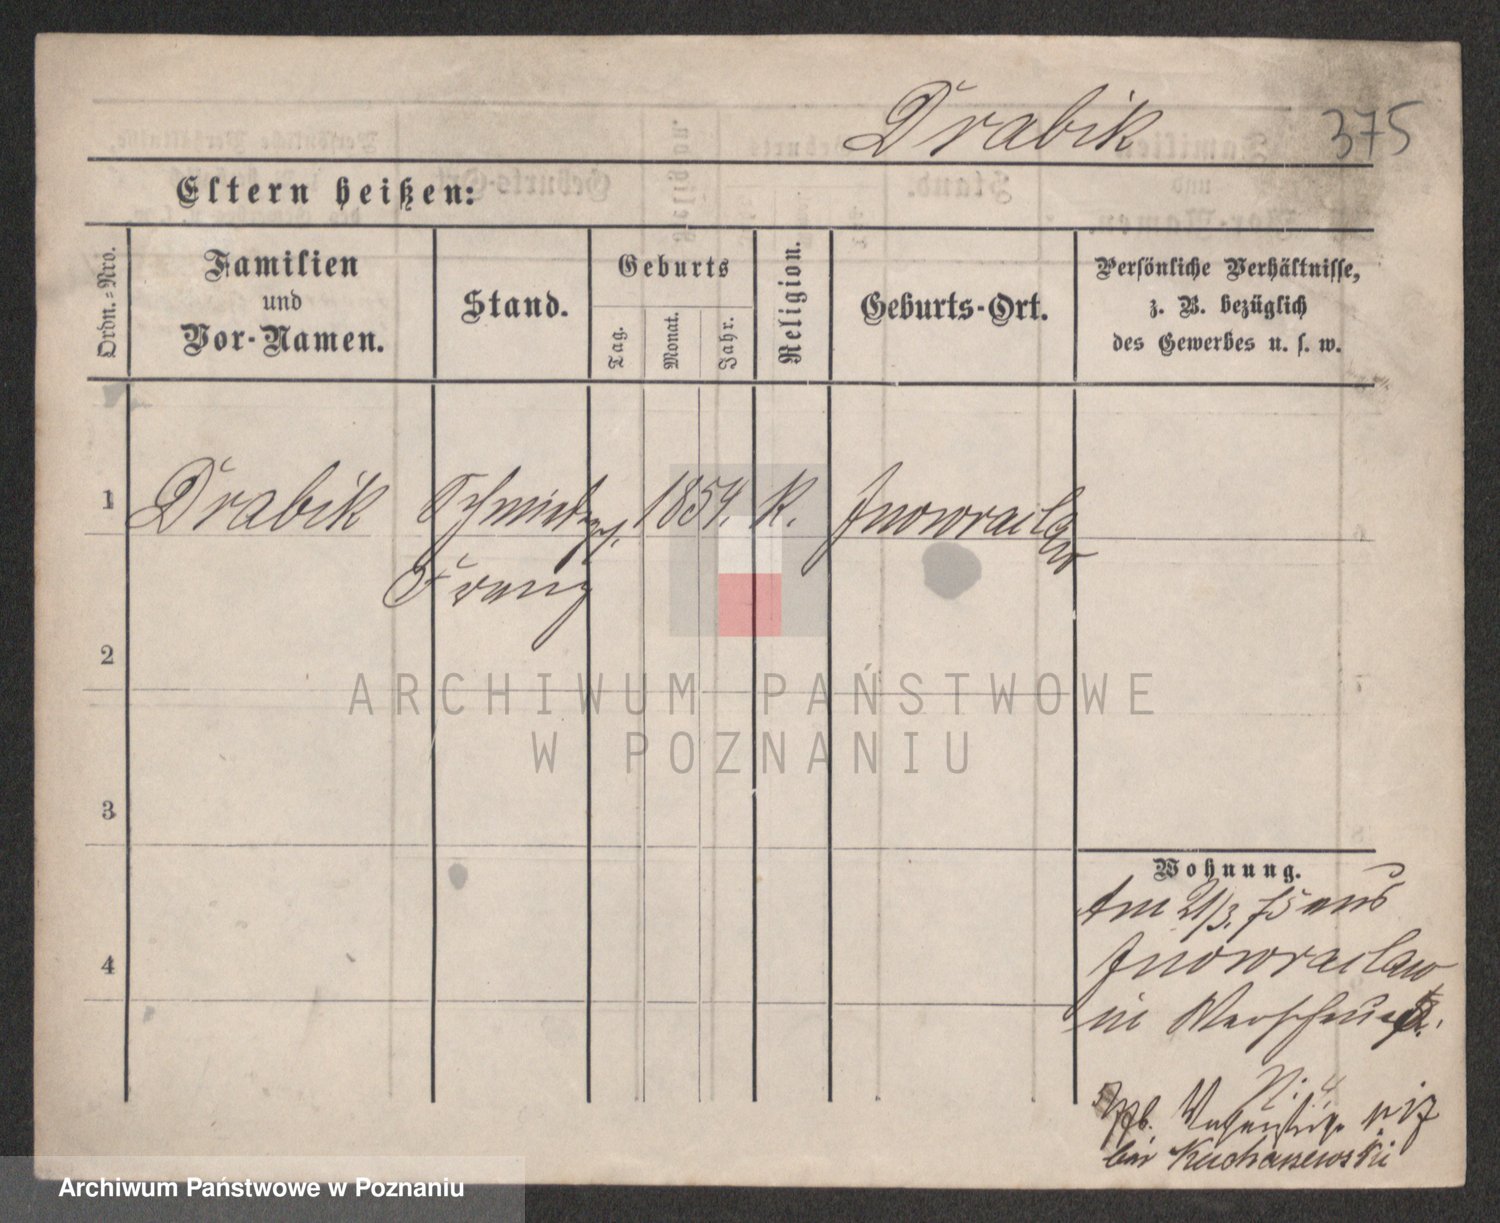 Drabik 375
Eltern heißen:
Ordn.-Nro.
Familien
und
Vor-Namen.
Stand.
Geburts
Tag.
Monat.
Jahr.
Religion.
Geburts-Ort.
Persönliche Verhältnisse,
z. B. bezüglich
des Gewerbes u. s. w.
1 Drabik 1854. K. Inowraclaw
Franz
2
3
4
Wohnung.
Am 21/3. 75 aus
Inowraclaw
in
bei Kuchanewski
ARCHIWUM PAŃSTWOWE
W POZNANIU
Archiwum Państwowe w Poznaniu